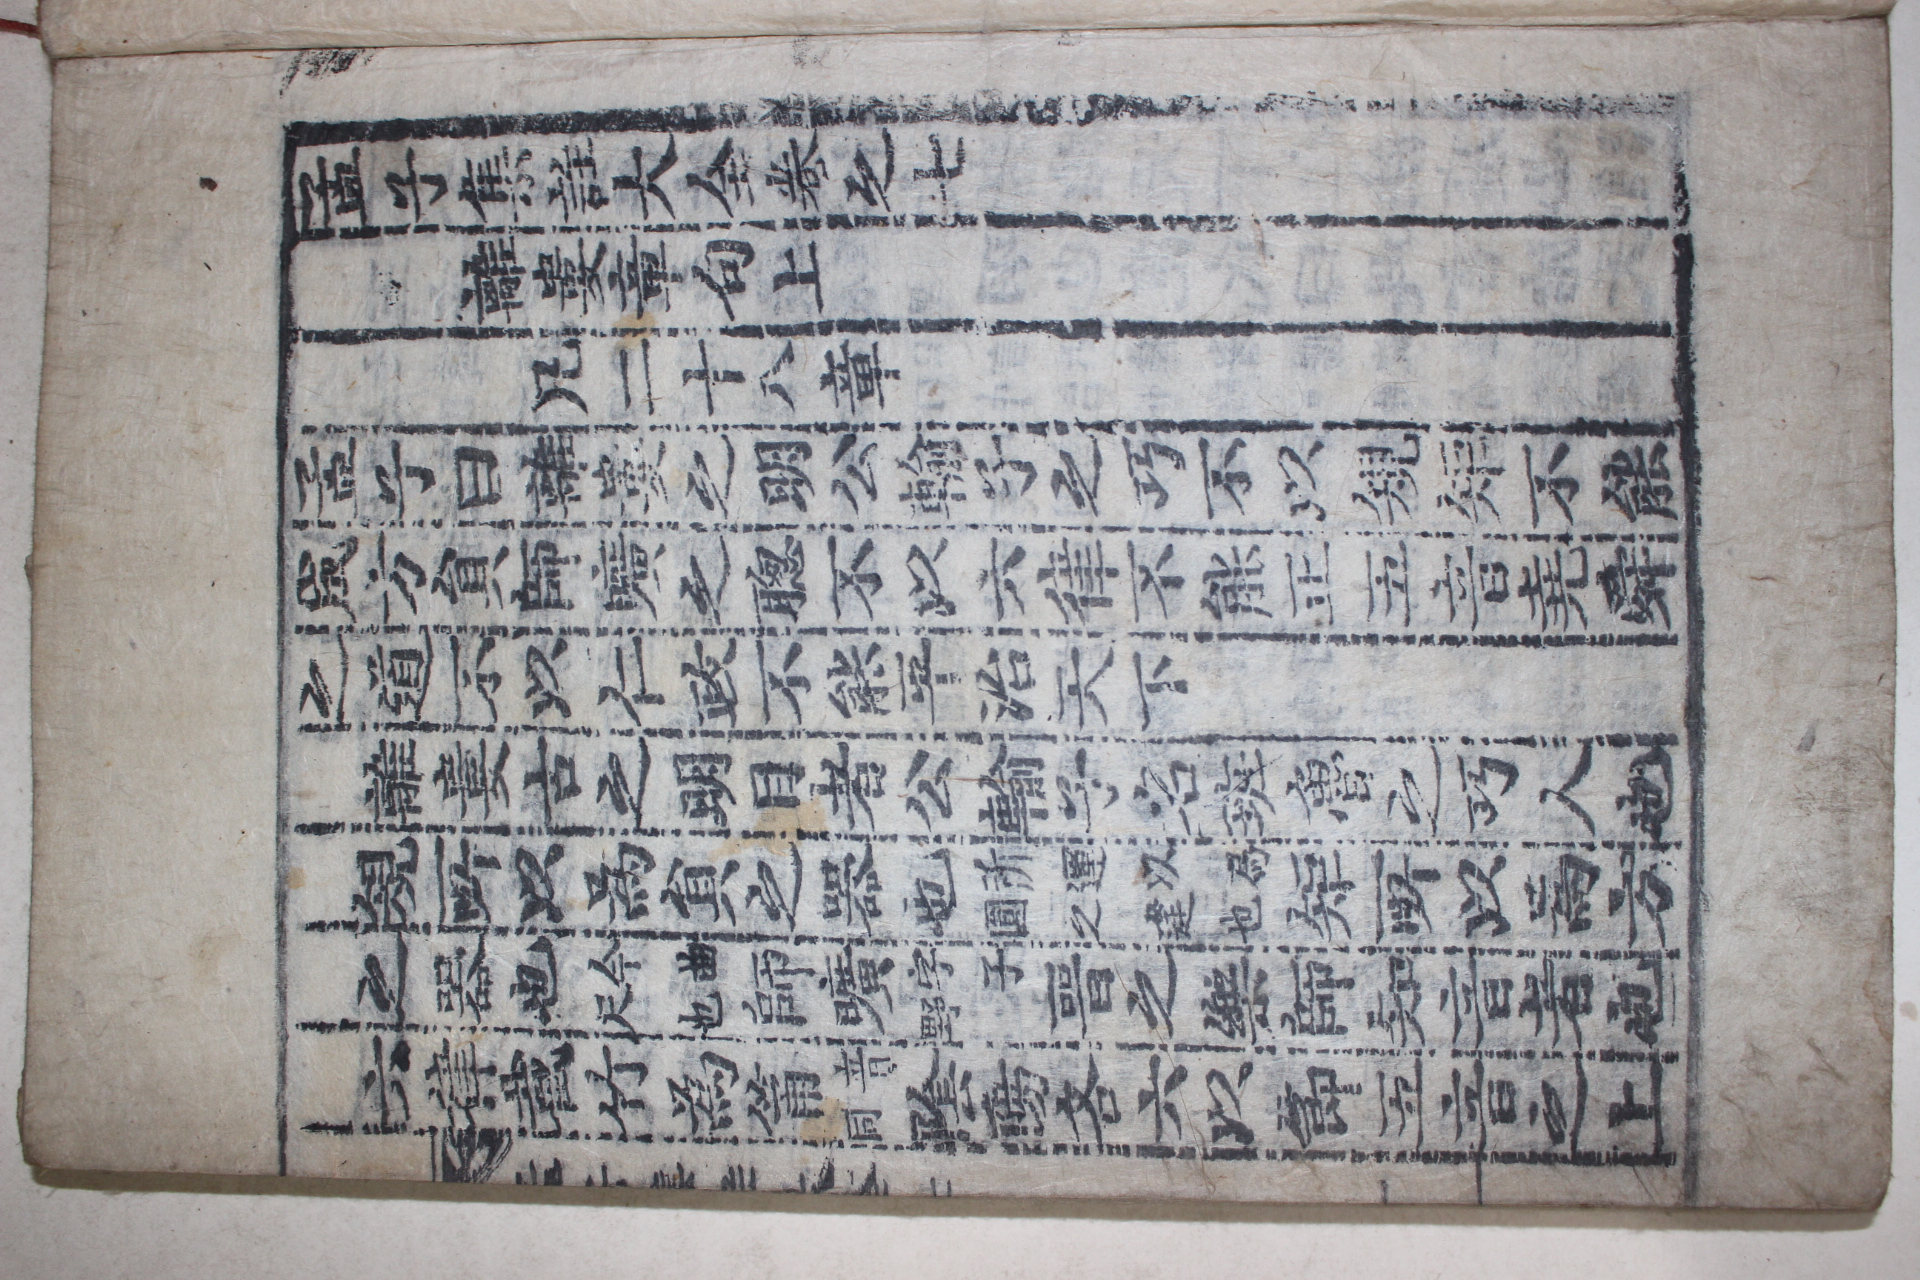 孟子集註大全卷之七
離婁章句上
凡二十八章
孟子曰離婁之明公輸子之巧不以規矩不能
成方員師曠之聰不以六律不能正五音堯舜
之道不以仁政不能平治天下
離婁古之明目者公輸子名班魯之巧人也
規所以為員之器也所運以為圓之
也矩所以為方
之器也今曲尺也師曠字子野晉之樂師知音者也
六律截竹為筩音同陰陽各六以節五音之上